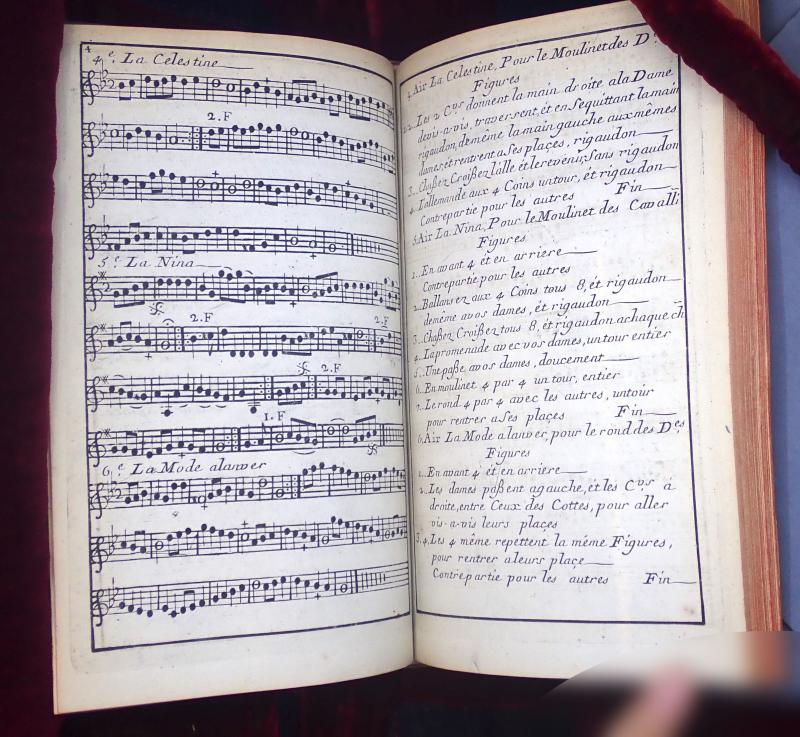 4
4.e La Celestine
2.F
5.e La Nina
2.F
2.F
2.F
1.F
6.e La Mode alanver
4 Air La Celestine, Pour le Moulinet des D.es
Figures
1.2. Les 2 C.vs donnent la main droite ala Dame
devis-a-vis, traversent, ét en Sequittant la main
rigaudon, demême la main gauche aux mêmes
dames, ét rentrent a Ses plaçes, rigaudon
3. Chaßez Croißez l'alle ét lerevenir, Sans rigaudon
4. L'allemande aux 4 Coins un tour, ét rigaudon
Contrepartie pour les autres Fin
5 Air La Nina, Pour le Moulinet des Cavalli
Figures
1. En avant 4 ét en arriere
Contrepartie pour les autres
2. Ballansez aux 4 Coins tous 8, ét rigaudon
demême avos dames, ét rigaudon
3. Chaßez Croißez tous 8, ét rigaudon achaque ch
4. La promenade avec vos dames, un tour entier
5. Une paße avos dames, doucement
6. En moulinet 4 par 4 un tour, entier
7. Le rond 4 par 4 avec les autres, untour
pour rentrer a Ses plaçes Fin
6 Air La Mode alanver, pour le rond des D.es
Figures
1. En avant 4 ét en arriere
2. Les dames paßent agauche, ét les C.vs á
droite, entre Ceux des Cottes, pour aller
vis-a-vis leurs plaçes
3.4. Les 4 même repettent la même Figures,
pour rentrer aleurs plaçe
Contrepartie pour les autres Fin